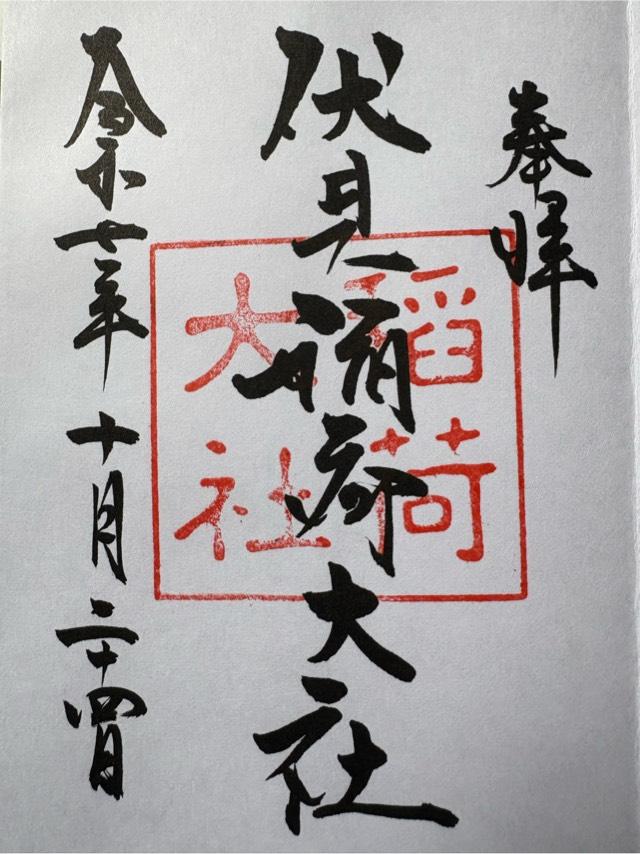 奉拝
伏見稲荷大社
稲荷
大社
令和七年十月二十四日